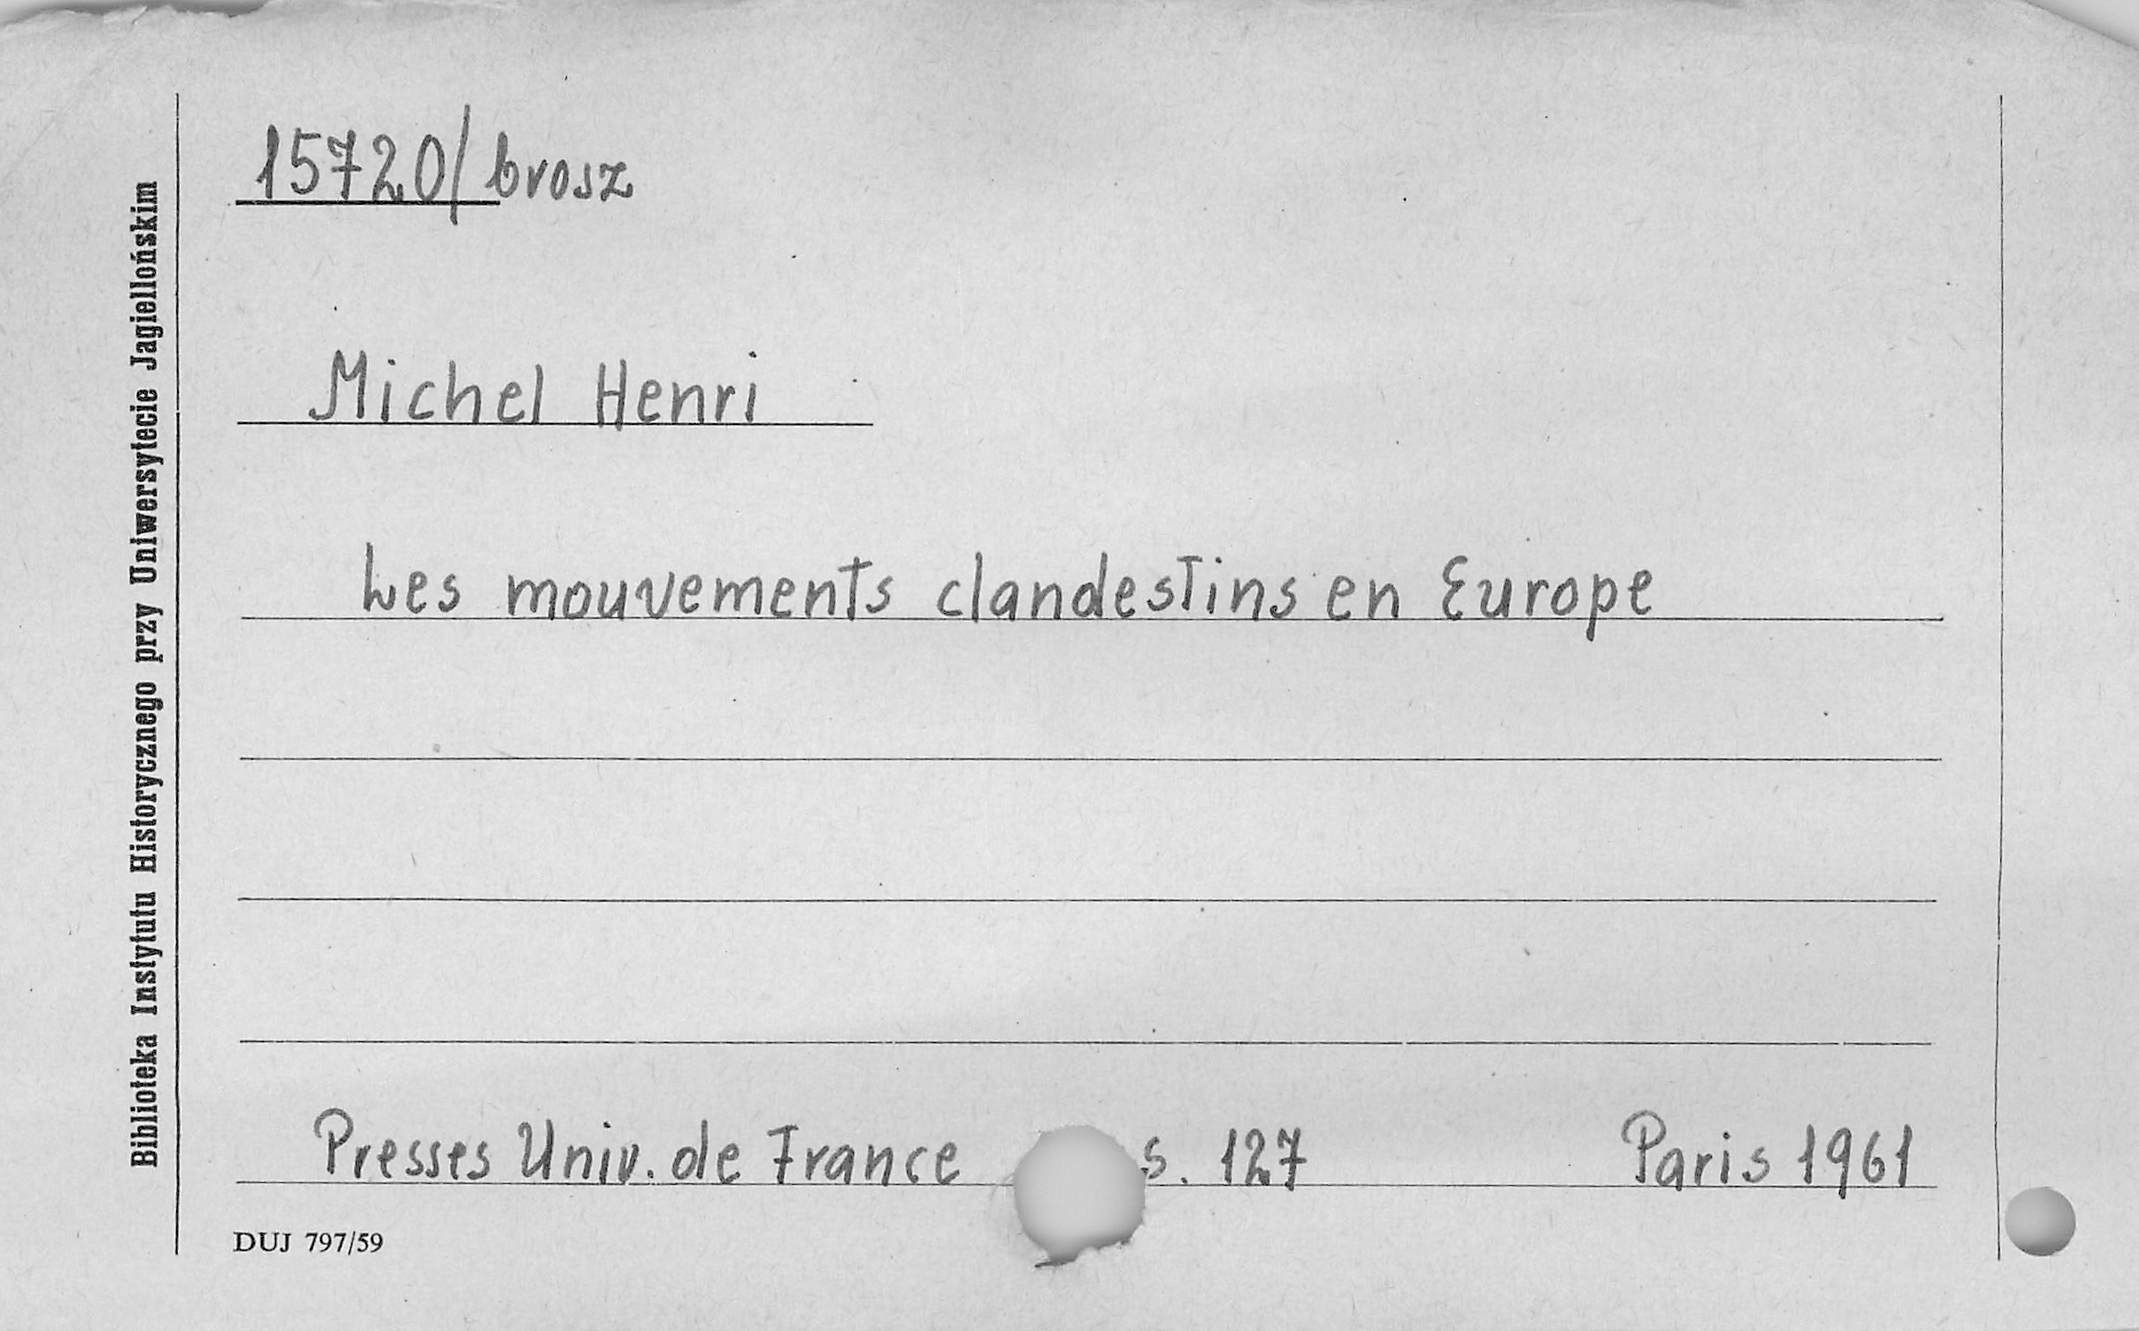 15720/brosz
Michel Henri
Les mouvements clandestins en Europe
Presses Univ. de France s. 127 Paris 1961
DUJ 797/59
Biblioteka Instytutu Historycznego przy Uniwersytecie Jagiellońskim